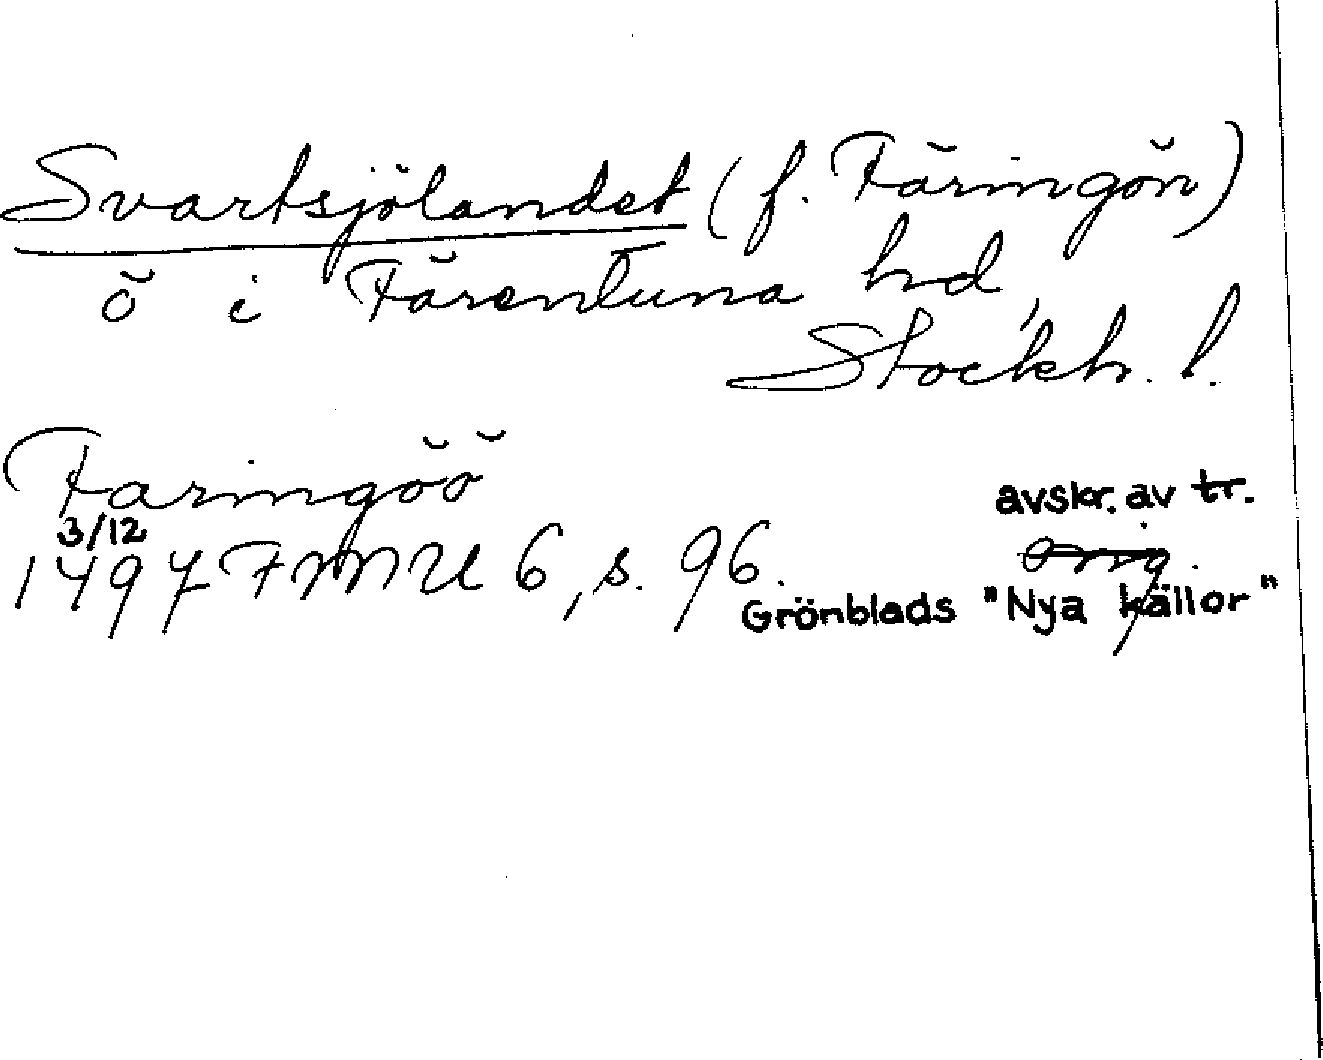 Svartsjölandet (f. Färingön)
ö i Färentuna hd,
Stockh. l.
Faringöö
avskr. av tr.
3/12
1497 FMU 6, s. 96. orig.
Grönblads "Nya källor"